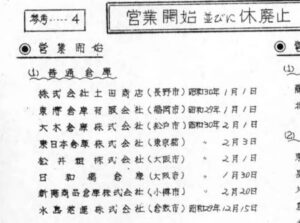 参考‥‥4
営業開始 並びに 休廃止
◉ 営業開始
(1) 普通倉庫
株式会社土田商店 (長野市) 昭和30年1月1日
東湾倉庫有限会社 (福岡市) 昭和29年1月1日
大木倉庫株式会社 (松戸市) 昭和30年2月1日
東日本倉庫株式会社 (東京都) 〃 2月3日
松井組株式会社 (大阪市) 〃 2月1日
日和橋倉庫 (大阪市) 〃 1月30日
新関商品倉庫株式会社 (小樽市) 〃 2月20日
水島港運株式会社 (倉敷市) 昭和29年12月15日
◉
(1)